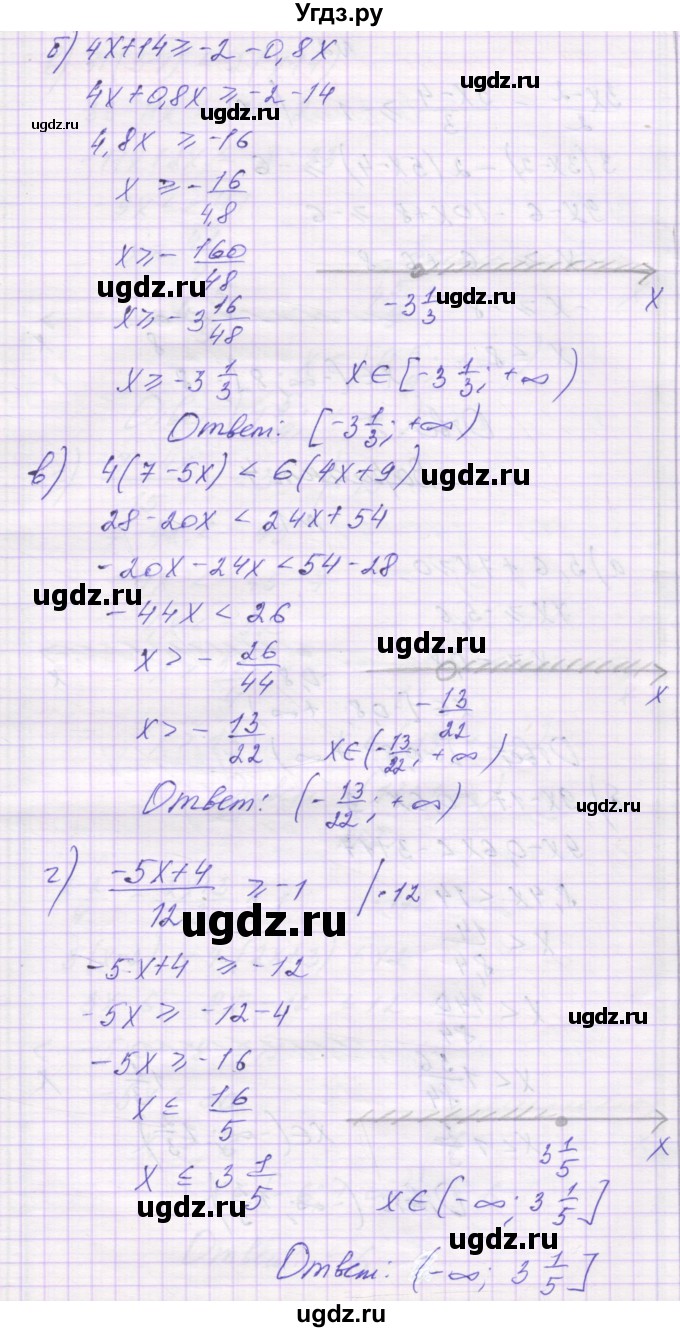 Угдз.ру
б) 4x+14 ≥ -2 -0,8x
ugdz.ru
4x+0,8x ≥ -2-14
ugdz.ru
ugdz.ru
4,8x ≥ -16
x ≥ - 16/4,8
x ≥ - 160/48
ugdz.ru
x
-3 1/3
ugdz.ru
x ≥ -3 16/48
ugdz.ru
x ≥ -3 1/3
x ∈ [-3 1/3; +∞)
Ответ: [-3 1/3; +∞)
в) 4(7-5x) < 6(4x+9)
ugdz.ru
28-20x < 24x+54
-20x-24x < 54-28
ugdz.ru
-44x < 26
ugdz.ru
x > - 26/44
x
-13/22
x > - 13/22
x ∈ (-13/22; +∞)
Ответ: (-13/22; +∞)
ugdz.ru
г) -5x+4/12 ≥ -1 |·12
ugdz.ru
-5x+4 ≥ -12
-5x ≥ -12-4
ugdz.ru
-5x ≥ -16
x ≤ 16/5
x
3 1/5
x ≤ 3 1/5
ugdz.ru
x ∈ (-∞; 3 1/5]
ugdz.ru
Ответ: (-∞; 3 1/5]
ugdz.ru